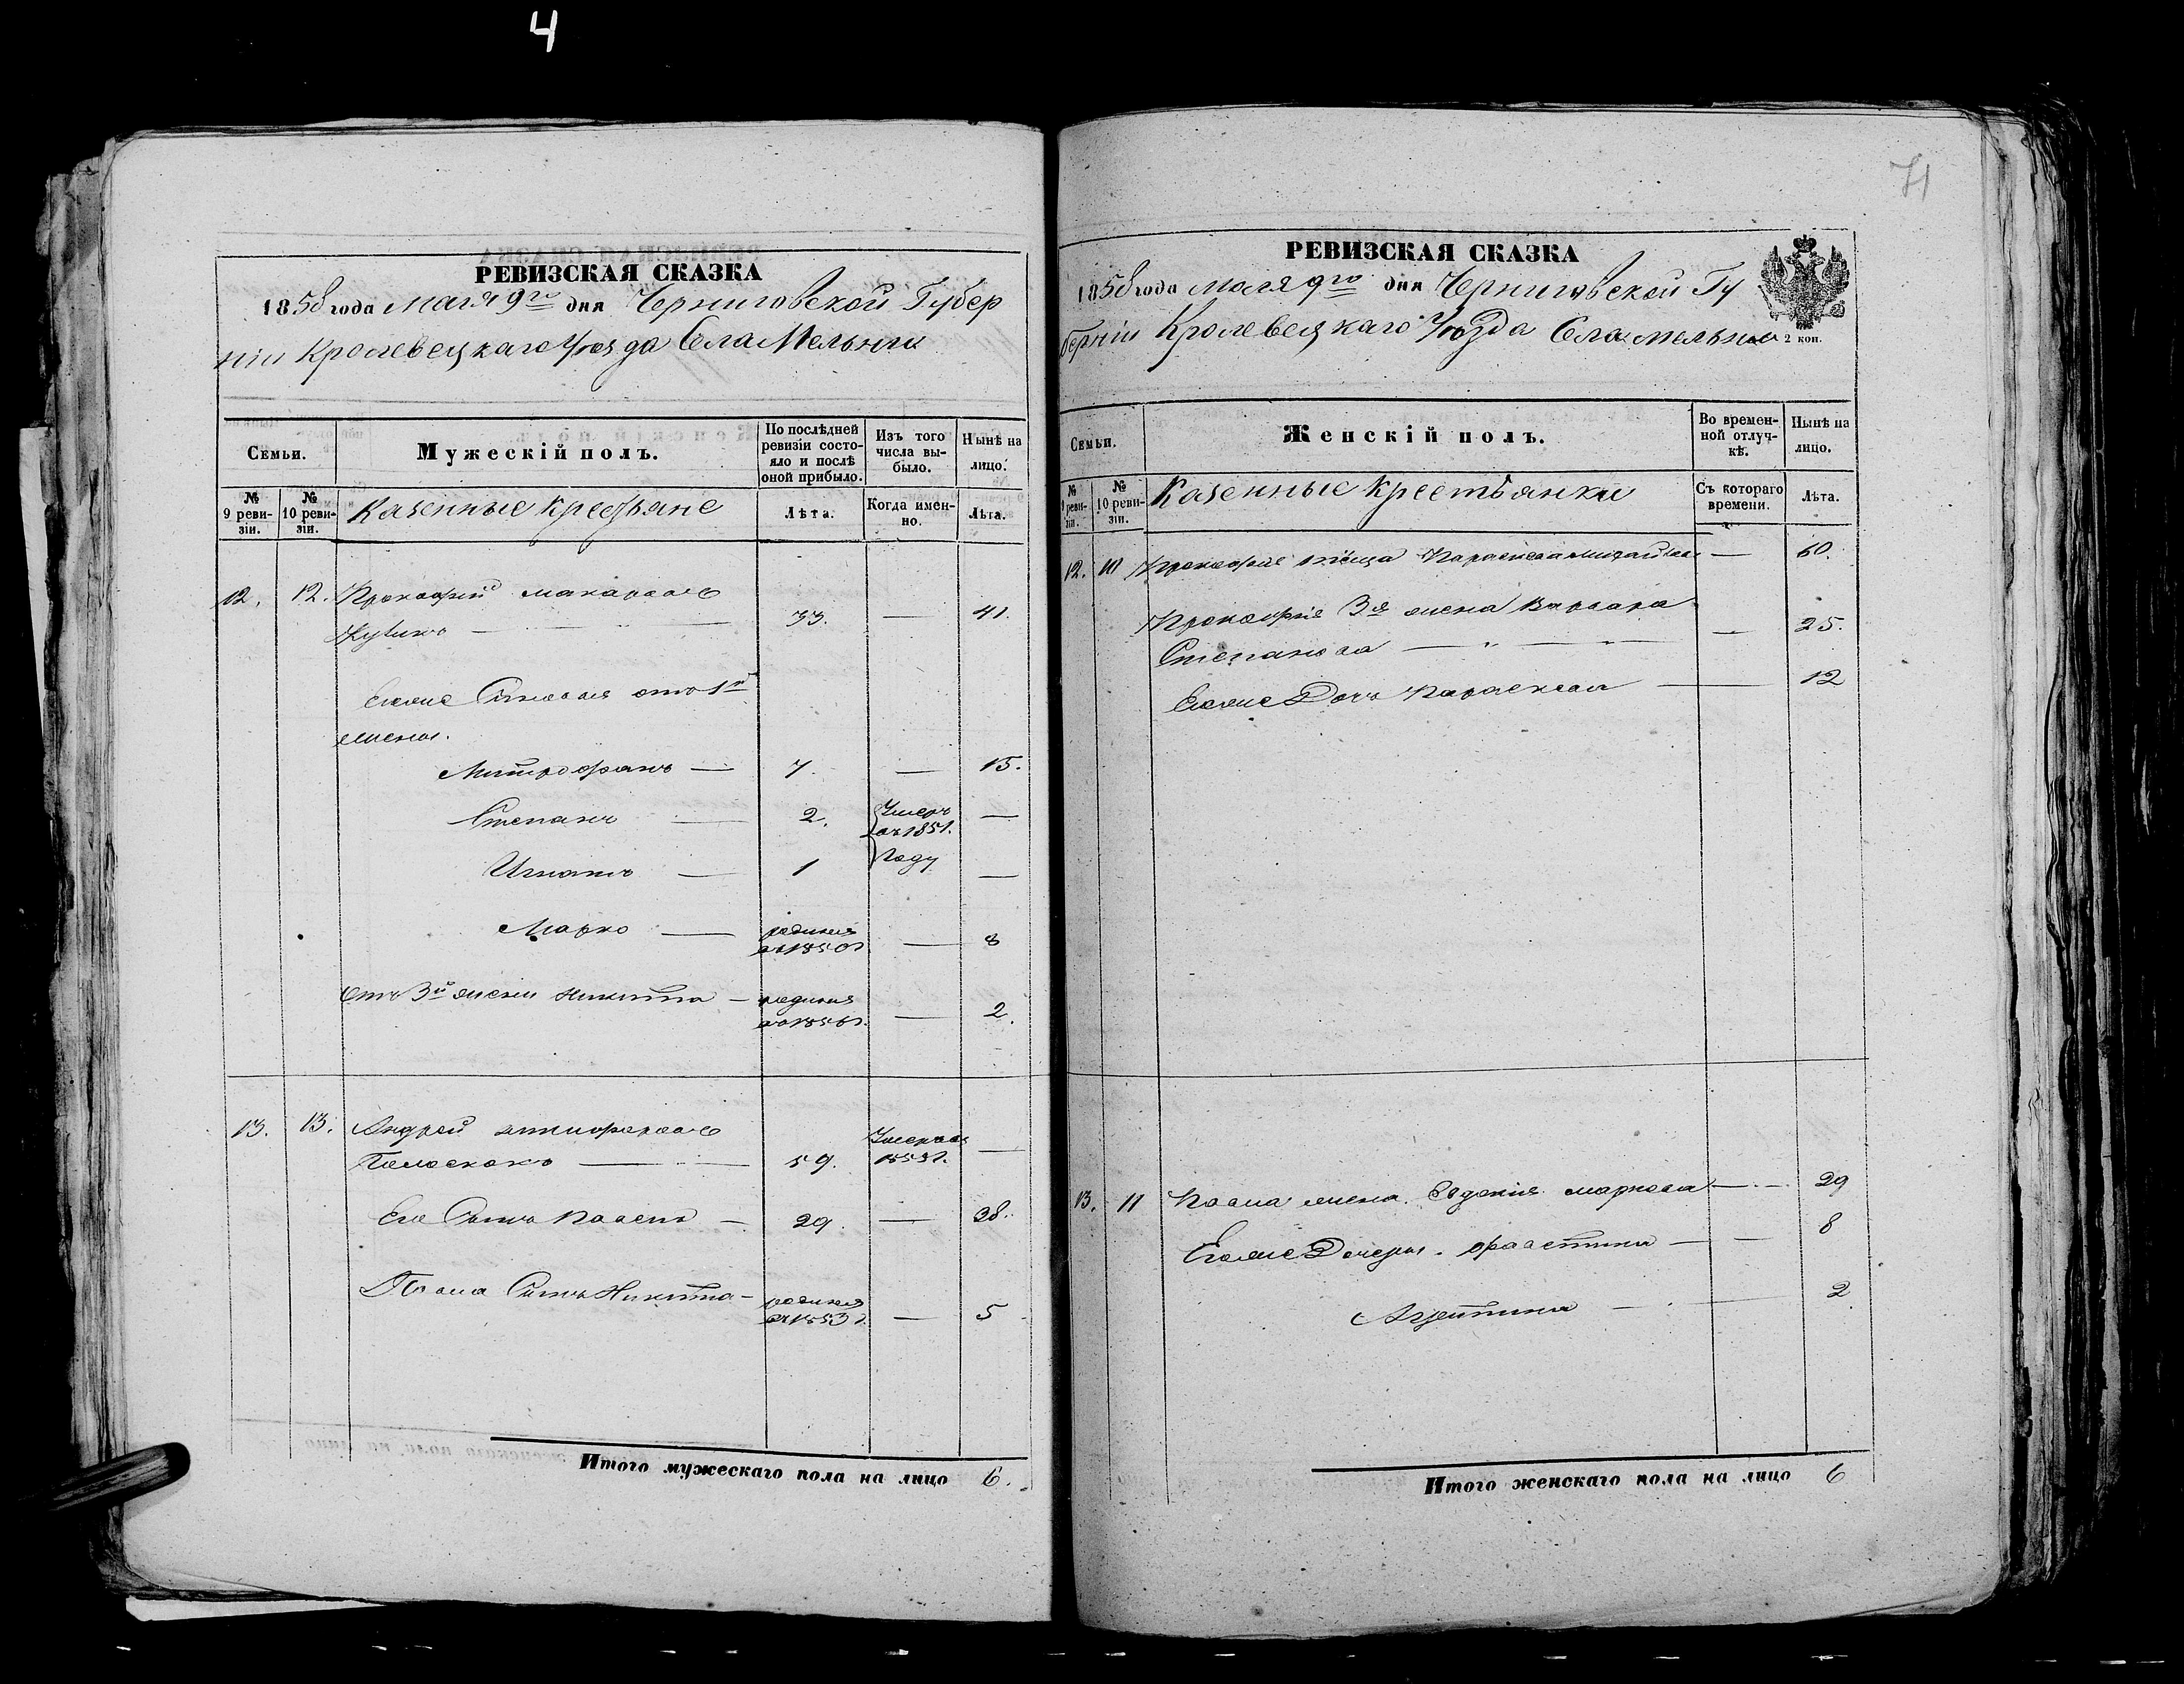 4
РЕВИЗСКАЯ СКАЗКА
1858 года мая 9го дня Черниговской Губер
ніи Кролевецкаго Уѣзда Села Мельни
Семьи.
Мужескій полъ.
По послѣдней ревизіи состояло и послѣ оной прибыло.
Изъ того числа выбыло.
Нынѣ на лицо.
№ 9 ревизіи.
№ 10 ревизіи.
Казенные Крестьяне
Лѣта.
Когда именно.
Лѣта.
12. 12. Прокофій Макаровъ
33. — 41.
Егоже Сыновья отъ 1й
жены.
Митрофанъ — 7. — 15.
Степанъ — 2. Умеръ въ 1851. —
Игнатъ — 1 Году —
Марко — родился въ 1850 г. — 8
Отъ 3й жены Никита — родился въ 1856 г. — 2.
13. 13. Андрей
59. —
Его Сынъ Павелъ — 29. — 38.
Павла Сынъ Никита — родился въ 1853 г. — 5
Итого мужескаго пола на лицо 6.
71
РЕВИЗСКАЯ СКАЗКА
1858 года мая 9го дня Черниговской Гу
берніи Кролевецкаго Уѣзда Села Мельни
2 коп.
Семьи.
Женскій полъ.
Во временной отлучкѣ.
Нынѣ на лицо.
№ 9 ревизіи.
№ 10 ревизіи.
Казенные Крестьянки
Съ котораго времени.
Лѣта.
12. 10 Прокофія тіоща Параскева — 60.
Прокофія 3я жена Варвара
Степанова — — 25.
Егоже Дочь Параскева — 12
13. 11 Павла жена Евдокія Маркова — 29
Егоже Дочери — 8
— 2
Итого женскаго пола на лицо 6